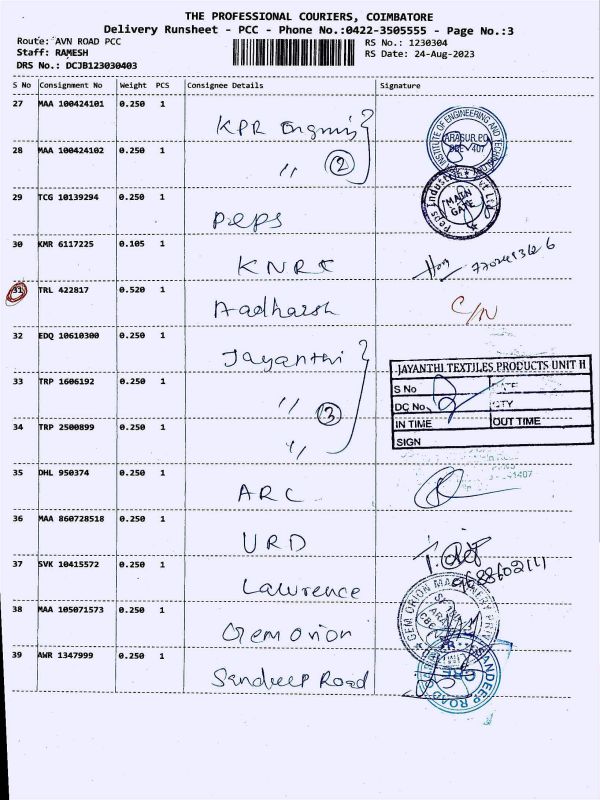 THE PROFESSIONAL COURIERS, COIMBATORE
Delivery Runsheet - PCC - Phone No.:0422-3505555 - Page No.:3
Route: AVN ROAD PCC
RS No.: 1230304
Staff: RAMESH
RS Date: 24-Aug-2023
DRS No.: DCJB123030403
S No Consignment No Weight PCS Consignee Details Signature
27 MAA 100424101 0.250 1
KPR
INSTITUTE OF ENGINEERING AND
ARASUR.PO
28 MAA 100424102 0.250 1
" 2
29 TCG 10139294 0.250 1
Peps
Peps Industries Pvt Ltd
MAIN GATE
30 KMR 6117225 0.105 1
KNRC
31 TRL 422817 0.520 1
Aadharsh C/N
32 EDQ 10610300 0.250 1
Jayanthi
JAYANTHI TEXTILES PRODUCTS UNIT II
S No DATE
DC No. QTY
IN TIME OUT TIME
SIGN
33 TRP 1606192 0.250 1
" 3
34 TRP 2500899 0.250 1
"
35 DHL 950374 0.250 1
ARC
36 MAA 860728518 0.250 1
URD
37 SVK 10415572 0.250 1
Lawrence
38 MAA 105071573 0.250 1
Gem Orion
GEM ORION MACHINERY PRIV
39 AWR 1347999 0.250 1
Sandeep Road
SANDEEP ROAD
CBE